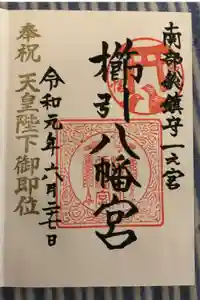 南部総鎮守一之宮
櫛引八幡宮
令和元年八月二七日
奉祝 天皇陛下御即位